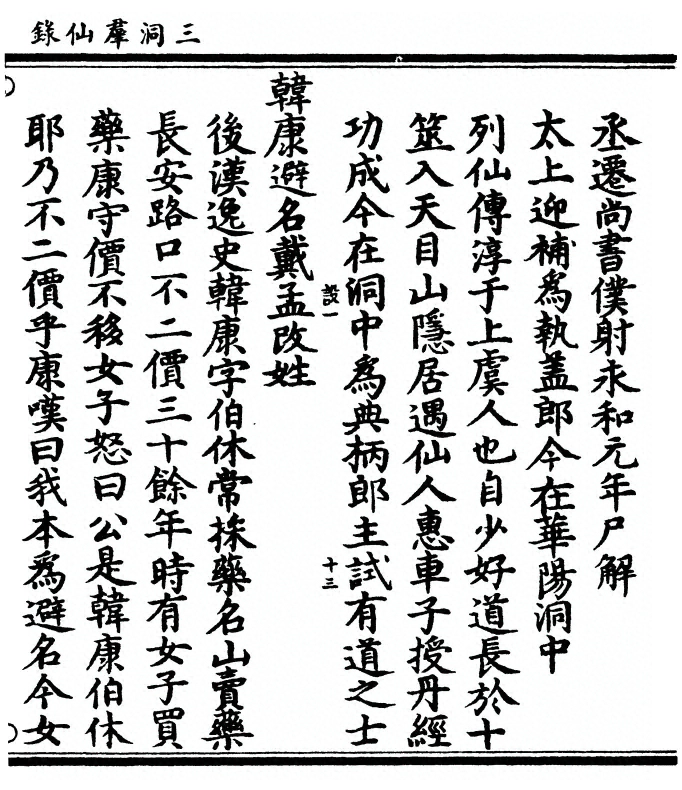 三洞羣仙錄
丞遷尚書僕射永和元年尸解
太上迎補為執蓋郎今在華陽洞中
列仙傳淳于上虞人也自少好道長於十
筮入天目山隱居遇仙人惠車子授丹經
功成今在洞中為典柄郎主試有道之士
設一
十三
韓康避名戴孟改姓
後漢逸史韓康字伯休常採藥名山賣藥
長安路口不二價三十餘年時有女子買
藥康守價不移女子怒曰公是韓康伯休
耶乃不二價乎康嘆曰我本為避名今女